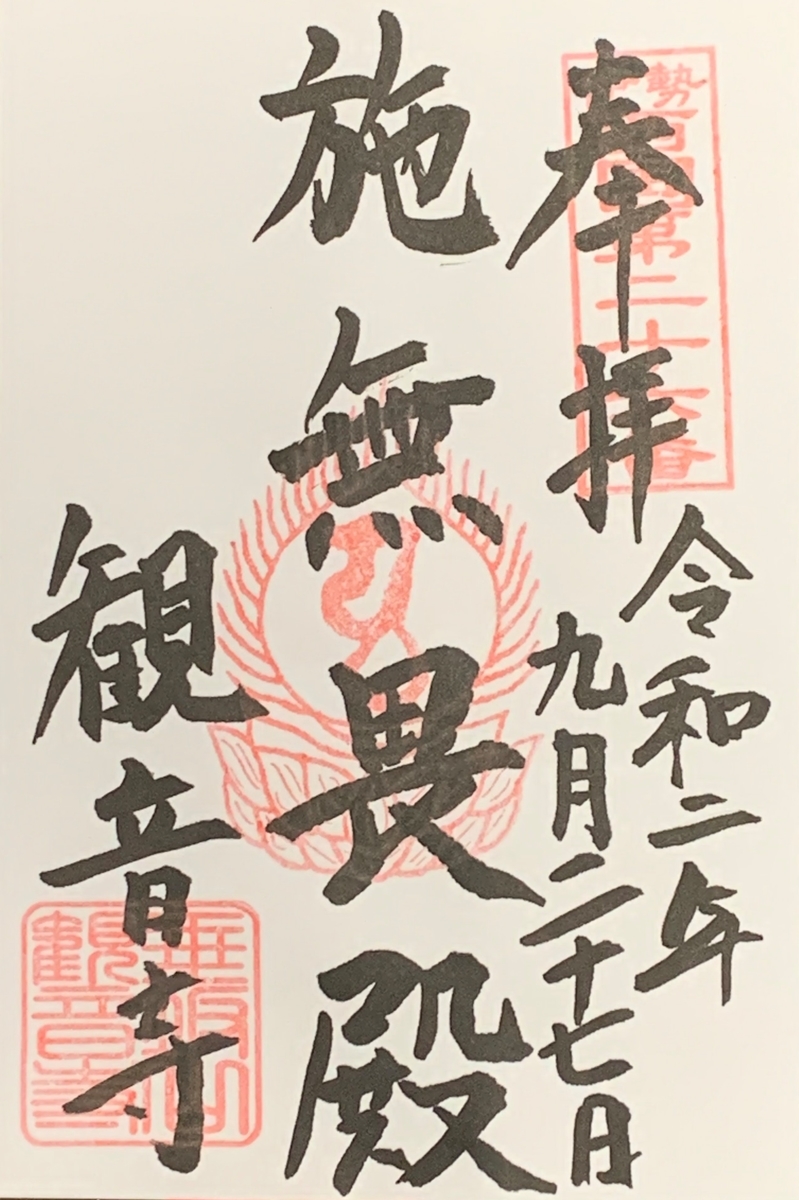 奉拝
令和二年
九月二十七日
施無畏殿
観音寺
第二十六番
観音寺